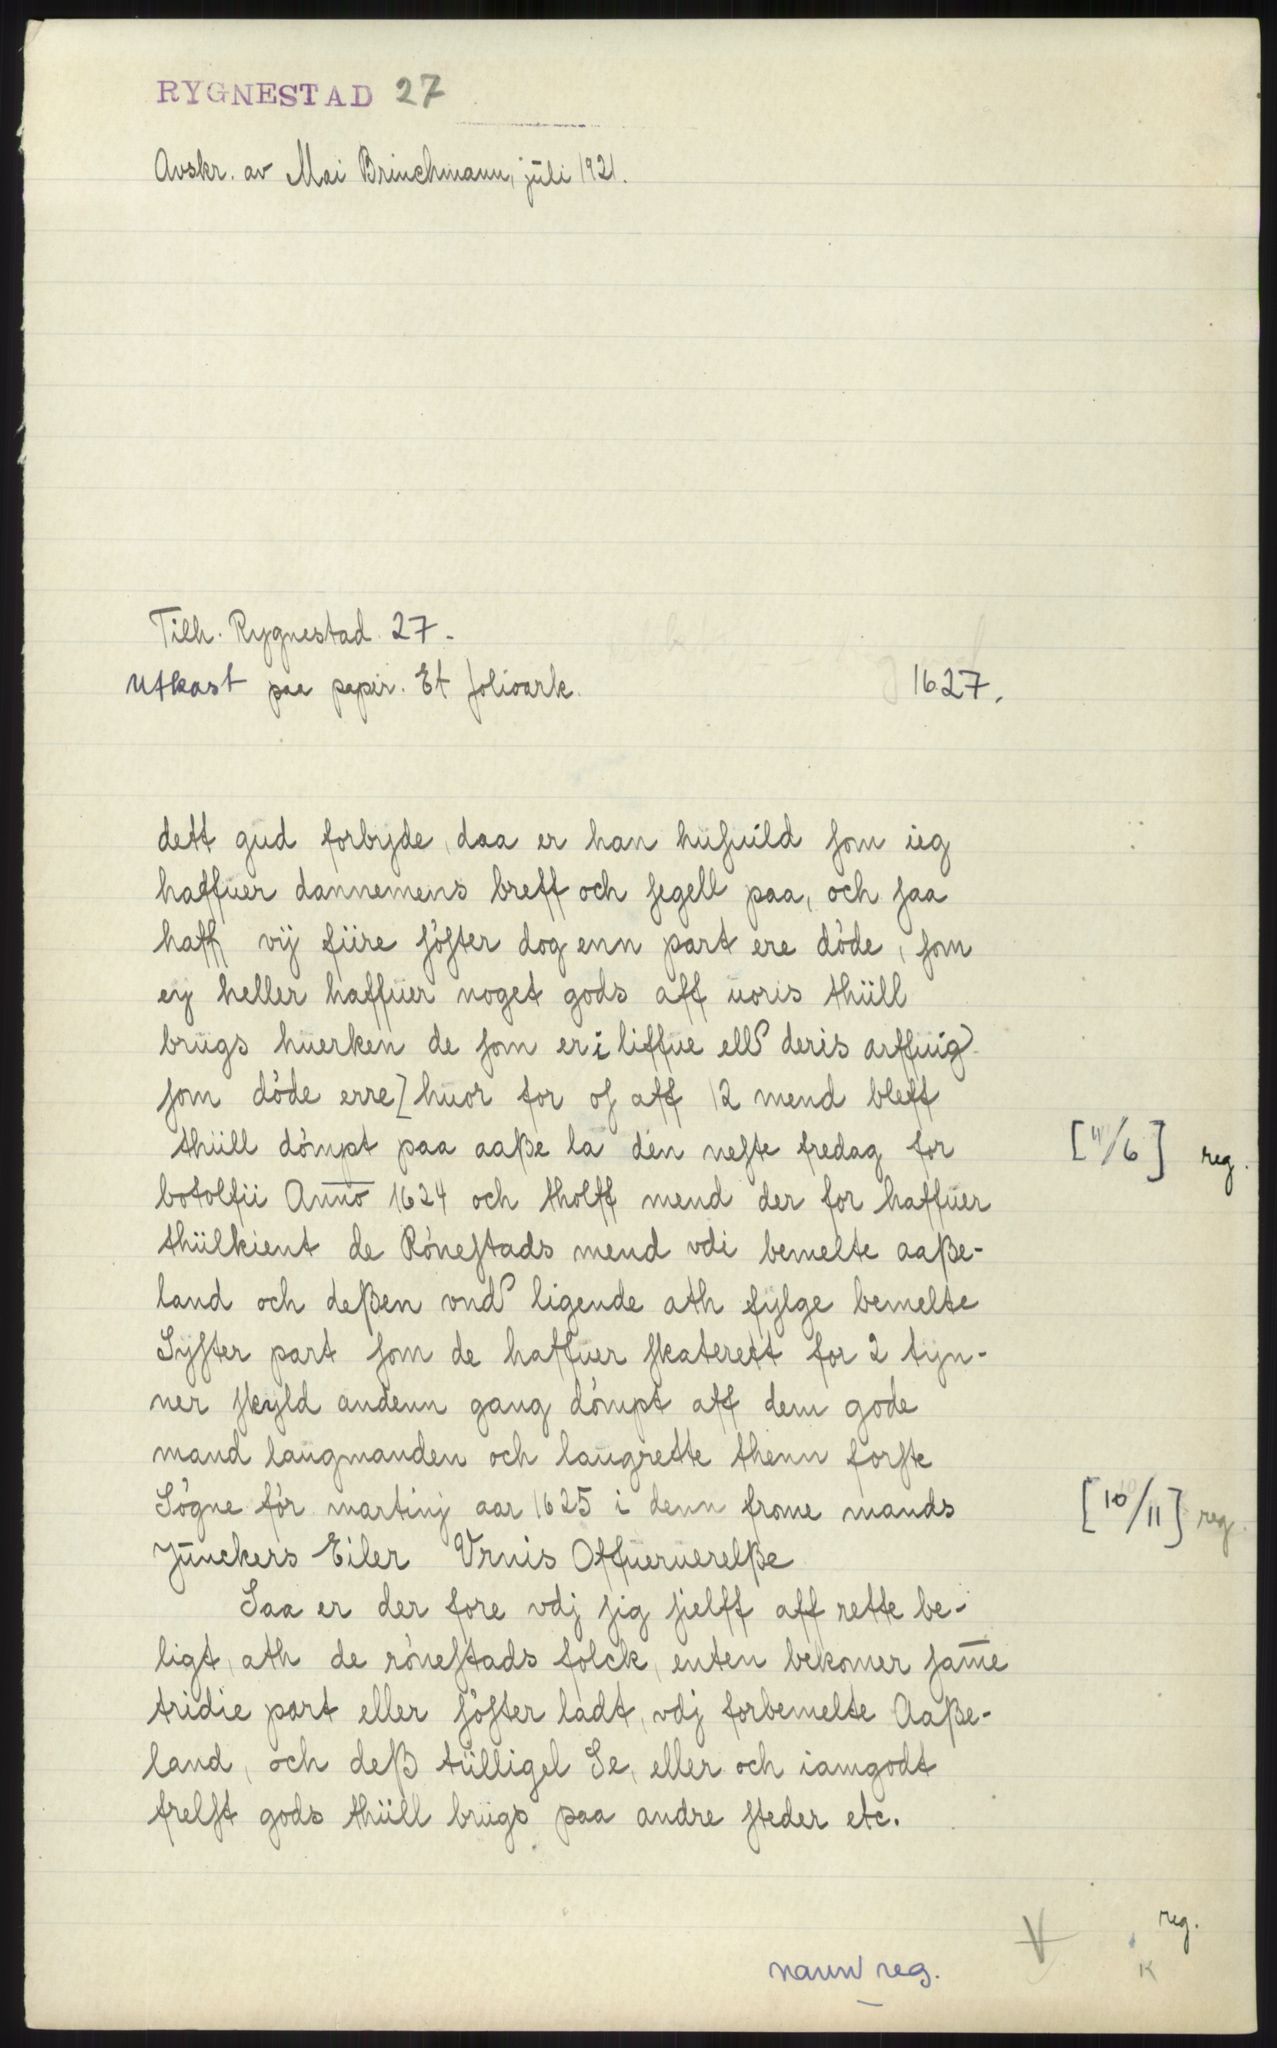 RYGNESTAD 27
Avskr. av Mai Brinchmann, juli 1921.
Tilh. Rygnestad 27.
Utkast paa papir. Et folioark. 1627.
dett gud forbyde, daa er han husuild som ieg
haffuer dannemens breff och segell paa, och saa
haff vij fiire söster dog enn part ere döde, som
eij heller haffuer noget gods aff uoris thüll
brugs huerken de som er i liffue ell deris arffuig
som döde erre] huor for os aff 12 mend bleff
thüll dömpt paa aaße la den neste fredag for [11/6] reg.
botolfii Anno 1624 och tholff mend der for haffuer
thülkient de Rönestads mend vdi bemelte aaße-
land och deßen vnd ligende ath fylge bemelte
Syster part som de haffuer skaterett for 2 tyn-
ner skyld andenn gang dömpt aff dem gode
mand laugmanden och laugrette thenn forste
Sögne för martinj aar 1625 i denn frome mands [10/11] reg.
Junckers Eiler Vrnis Offueruerelße
Saa er der fore vdj sig sielff aff rette be-
ligt, ath de rönestads folck, enten bekomer same
tridie part eller söster ladt, vdj forbemelte Aaße-
land, och deß tülligel Se, eller och iamgodt
frelst gods thüll brugs paa andre steder etc.
reg.
V K
navn reg.